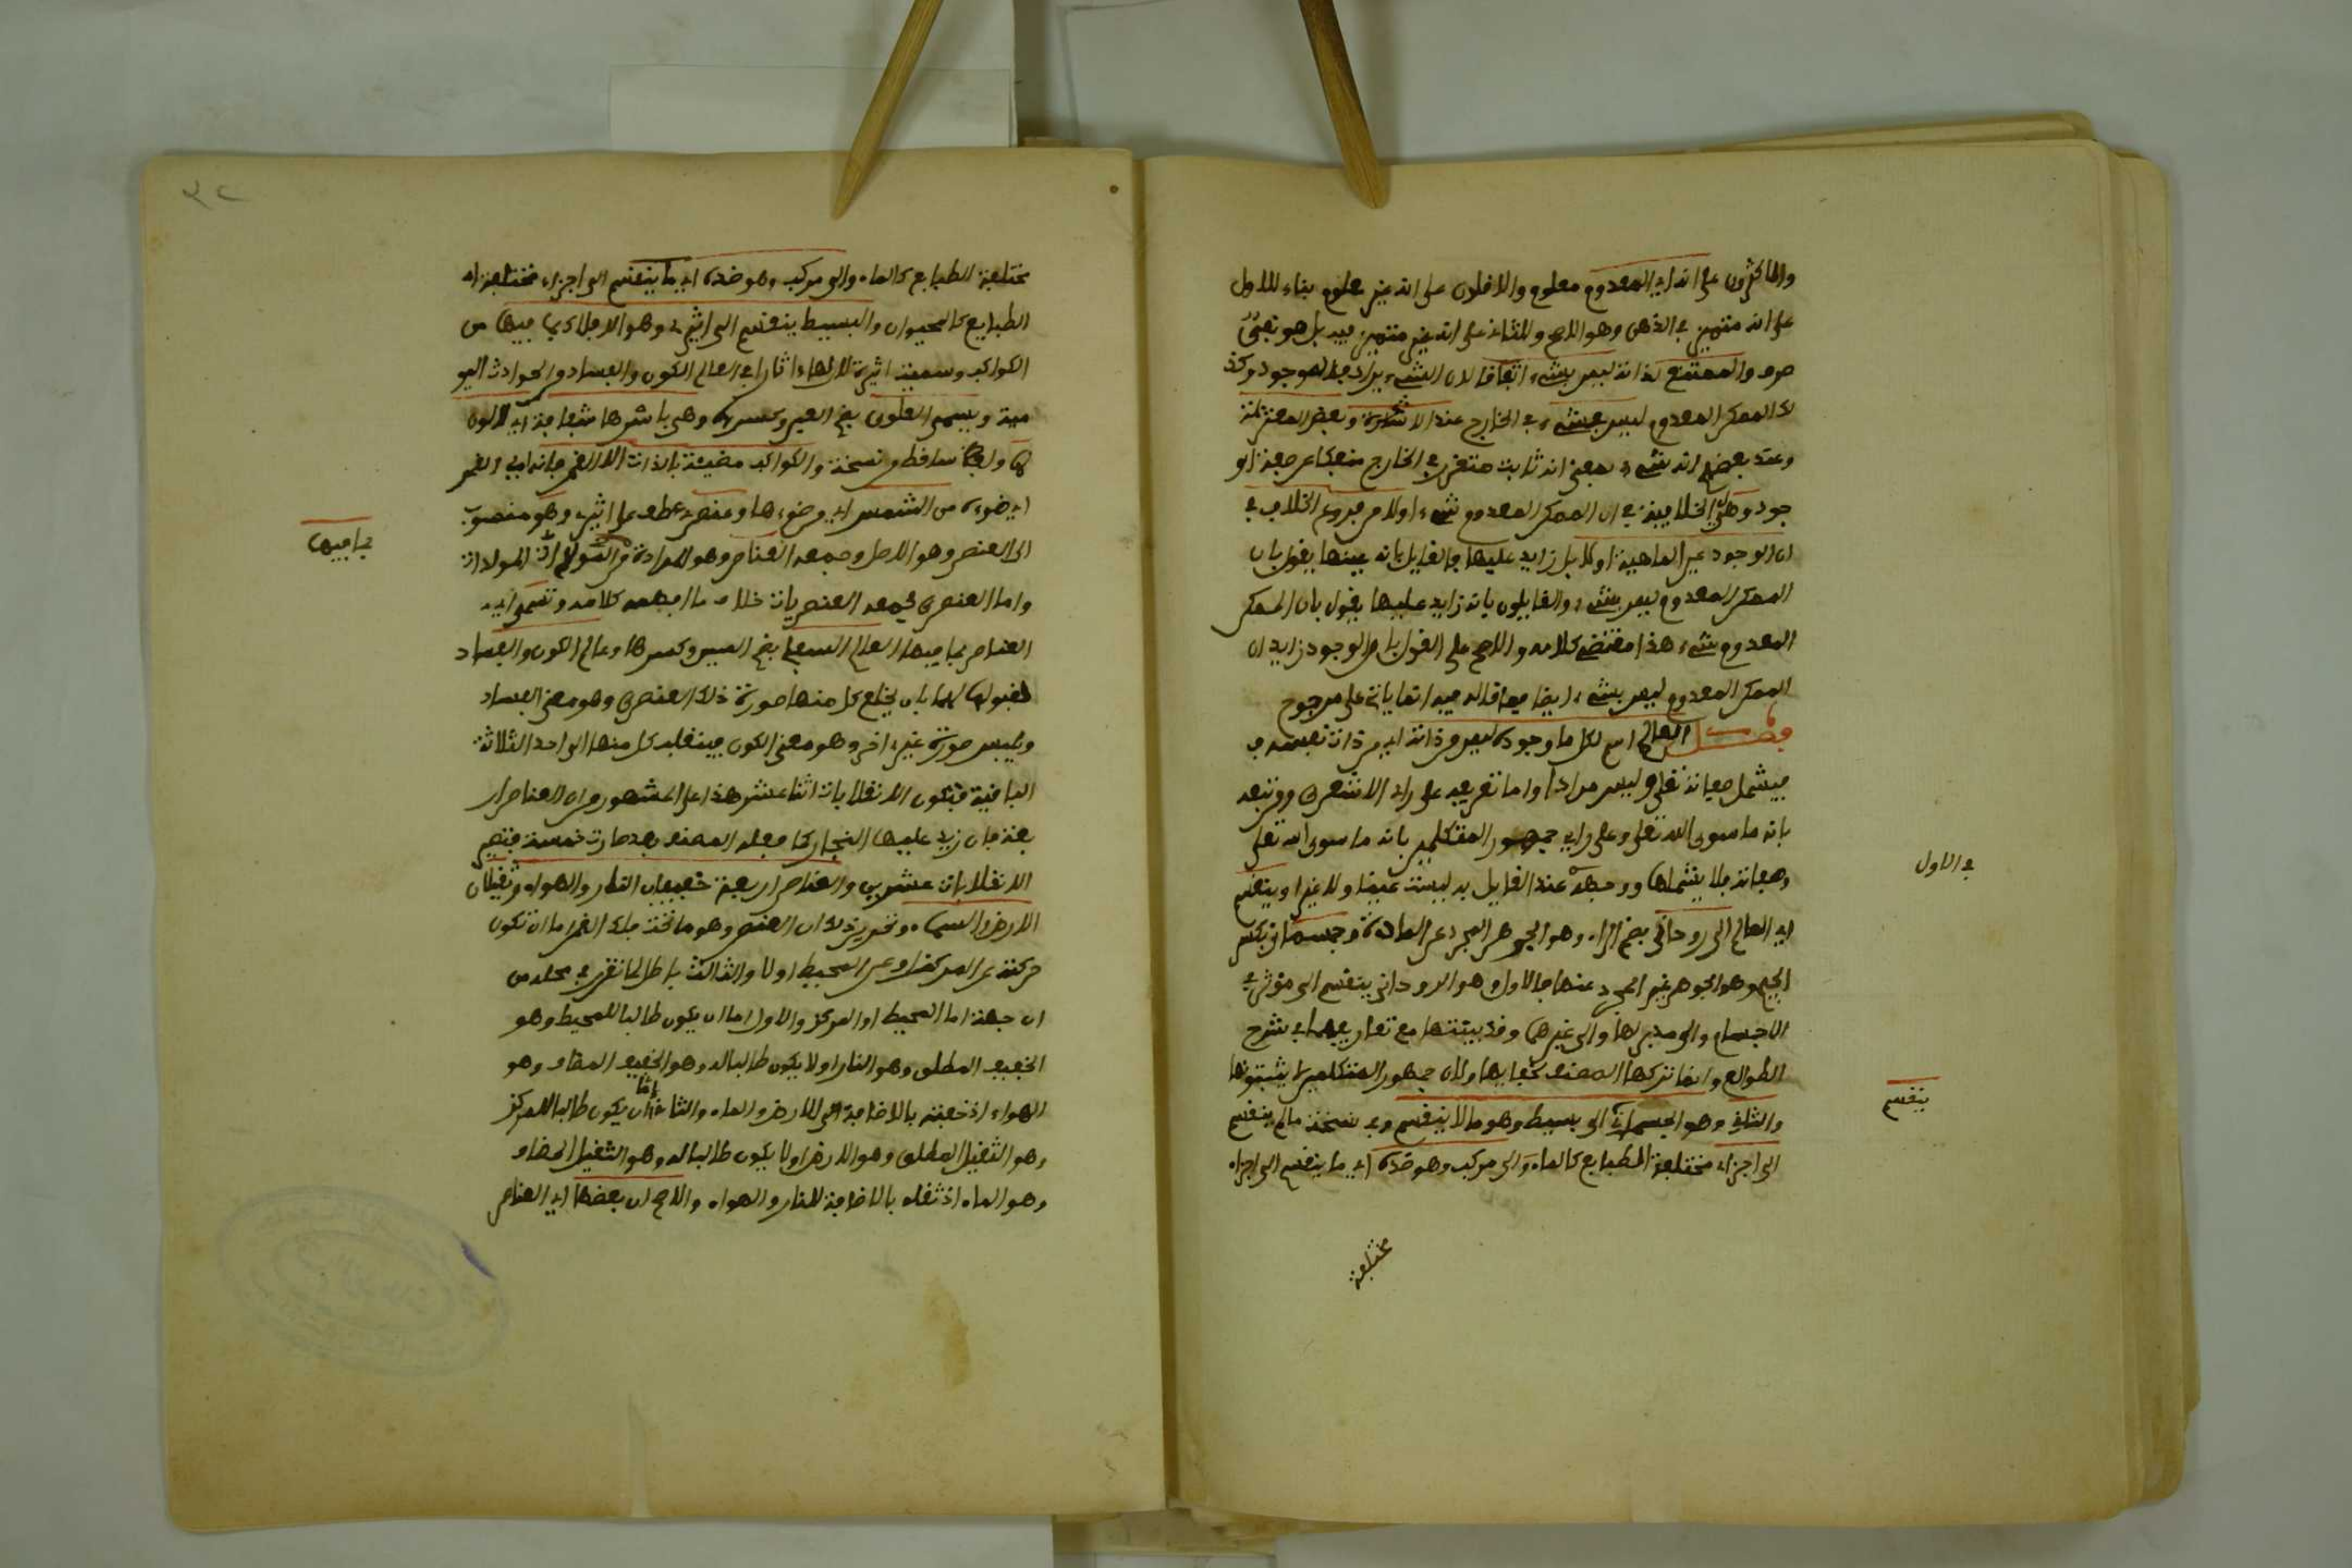 والاكثرون على انه اي المعدوم معلوم والاقلون على انه غير معلوم بناء للاول
على انه متميز في الذهن وهو الاصح وللثاني على انه غير متميز فيه بل هو نفي
صرف والممتنع لذاته ليس بشيء اتفاقا لان الشيء يرادف الموجود وكذ
لك الممكن المعدوم ليس بشيء في الخارج عند الاشاعرة وبعض المعتزلة
وعند بعضهم انه شيء بمعنى انه ثابت متقرر في الخارج منفكا عن صفة الو
جود وهل الخلاف في ان الممكن المعدوم شيء اولا من فروع الخلاف في
ان الوجود عين الماهية او لا بل زايد عليها فالقايل بانه عينها يقول بان
الممكن المعدوم ليس بشيء والقايلون بانه زايد عليها يقول بان الممكن
المعدوم شيء هذا مقتضى كلامه والاصح على القول بان الوجود زايد ان
الممكن المعدوم ليس بشيء ايضا فما قاله فيه انما ياتي على مرجوح
فصل العالم اسم لكل ما وجوده ليس من ذاته اي من ذات نفسه ف
فيشمل صفاته تعلى وليس مرادا واما تعريفه على راي الاشعري ومن تبعه
بانه ما سوى الله تعلى وعلى راي جمهور المتكلمين بانه ما سوى الله تعلى
وصفاته فلا يشملها ووجهه عند القايل به ليست عينا ولا غيرا وينقسم
اي العالم الى روحاني بضم الراء وهو الجوهر المجرد عن المادة وجسماني بكسر
الجيم وهو الجوهر غير المجرد عنها فالاول وهو الروحاني ينقسم الى مؤثر في
الاجسام والى مدبر لها والى غيرهما وقد بينتها مع تعاريفها في شرح
الطوالع وانما تركها المصنف لخفايها ولان جمهور المتكلمين لم يثبتوها
والثاني وهو الجسماني الى بسيط وهو ما لا ينقسم وفي نسخة ما لم ينقسم
الى اجزاء مختلفة الطبايع كالماء والى مركب وهو ضده اي ما ينقسم الى اجزاء
مختلفة
في الاول
ينقسم
٣٢
مختلفة الطبايع كالماء والى مركب وهو ضده اي ما ينقسم الى اجزاء مختلفة
الطبايع كالحيوان والبسيط ينقسم الى اثيري وهو الافلاك بما فيها من
الكواكب وسميت اثيرية لان لها اثارا في العالم الكون والفساد والحوادث اليو
مية ويسمى العلوي بضم العين وكسرها وهي باسرها شفافة اي لا لون
لها ساقط من نسخة والكواكب مضيئة بالذات الا القمر فانه اي القمر
اي ضوءه من الشمس اي من ضوءها وعنصري عطف على اثيري وهو منصوب
الى العنصر وهو الاصل وجمعه العناصر وهو المادة والمولدات
واما العنصري فجمعه العنصريات خلاف ما افهمه كلامه وتسمى اي
العناصر بما فيها العالم السفلي بضم السين وكسرها وعالم الكون والفساد
لقبولها لهما بان يخلع كل منها صورة ذلك العنصري وهو معنى الفساد
ويلبس صورة غيره اخرى وهو معنى الكون فينقلب كل منها الى واحد الثلاثة
الباقية فتكون الانقلابات اثنا عشر هذا على المشهور من ان العناصر ار
بعة فان زيد عليها البخار كما فعله المصنف بعد صارت خمسة فتصير
الانقلابات عشرين والعناصر اربعة خفيفان النار والهواء وثقيلان
الارض والماء وتحرير ذلك ان العنصر وهو ما تحت فلك القمر اما ان تكون
حركته عن المركز او عن المحيط اولا والثالث باطل لما تقرر في محله من
ان جهتها اما المحيط او المركز والاول اما ان يكون طالبا للمحيط وهو
الخفيف المطلق وهو النار اولا يكون طالبا له وهو الخفيف المضاف وهو
الهواء اذ خفته بالاضافة الى الارض والماء والثاني اما ان يكون طالبا للمركز
وهو الثقيل المطلق وهو الارض اولا يكون طالبا له وهو الثقيل المضاف
وهو الماء اذ ثقله بالاضافة للنار والهواء والاصح ان بعضها اي العناصر
بما فيها